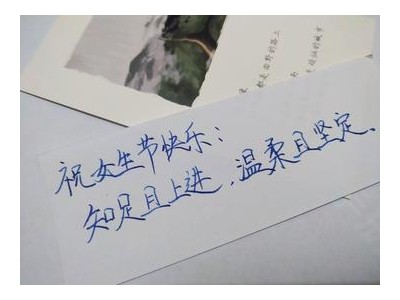 祝女生节快乐：
知足且上进，温柔且坚定、